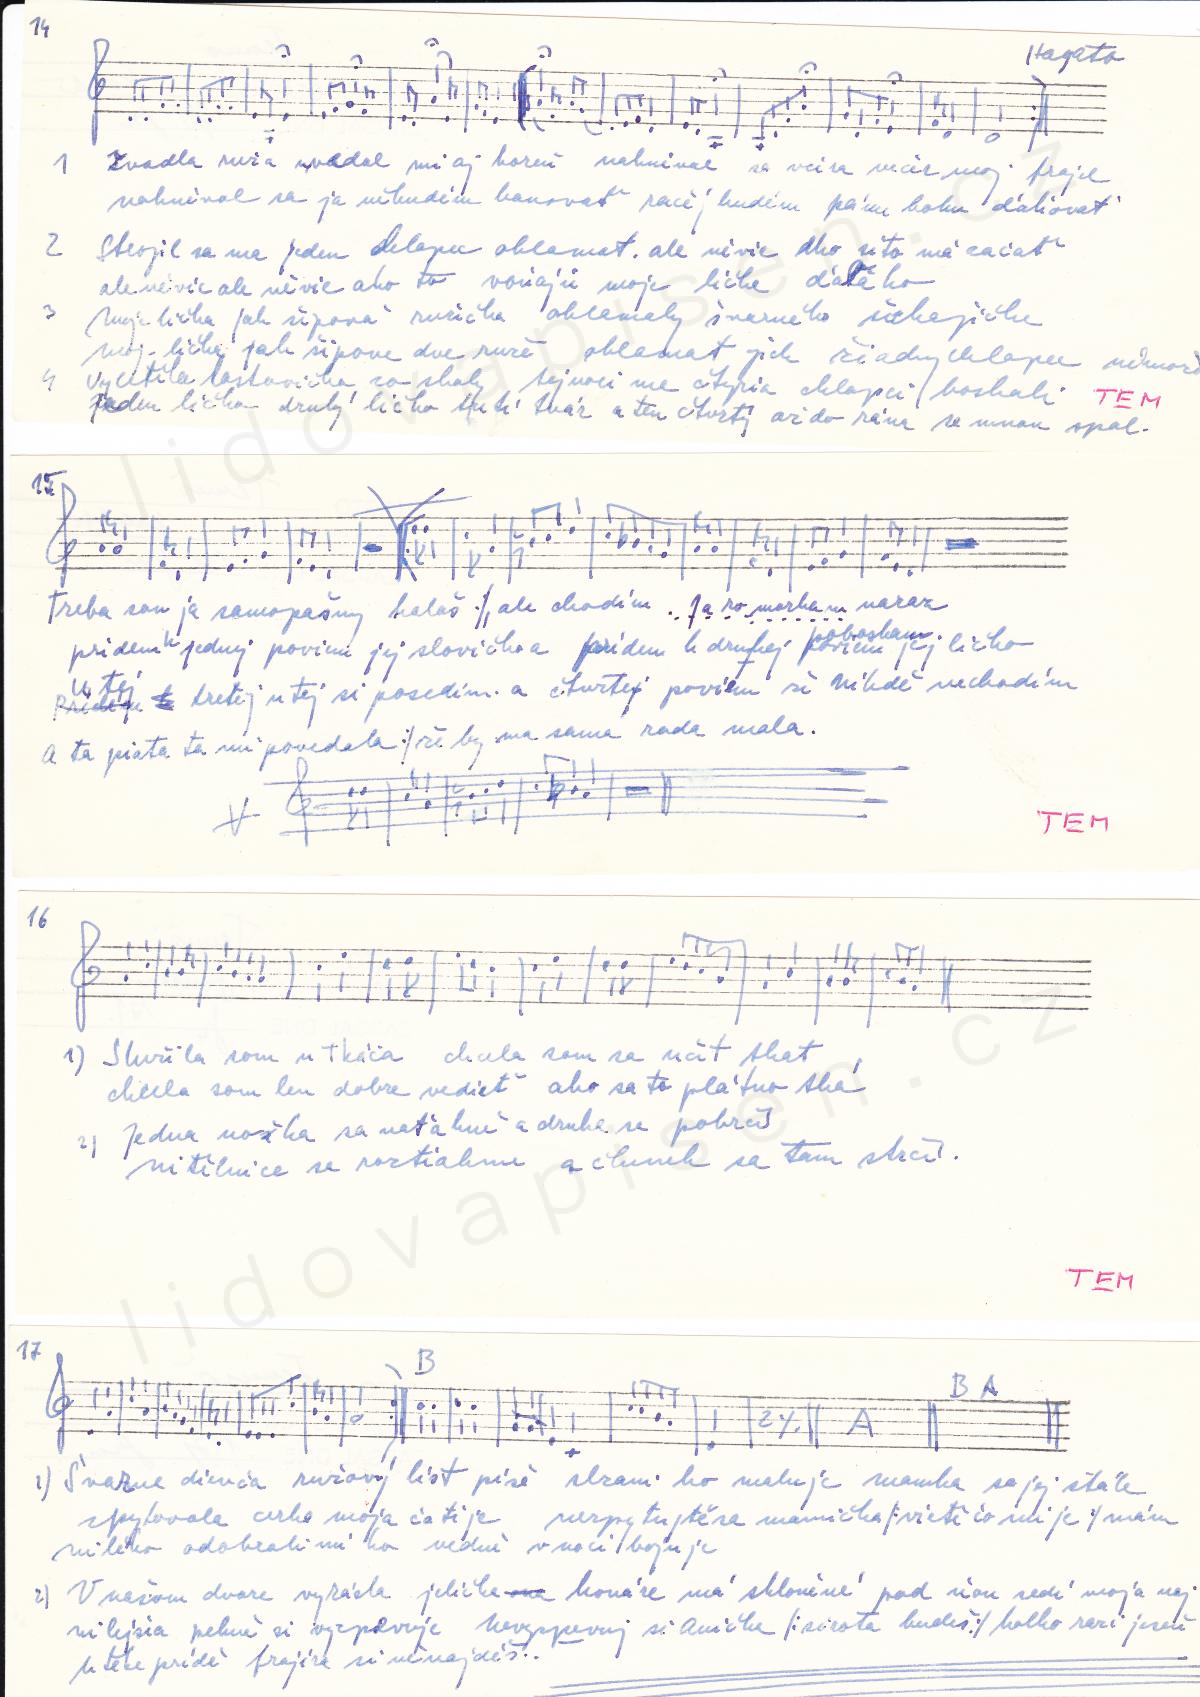 14
Hageta
1 Zvadla ruža uvadal mi aj koreň nahnival sa včera večer moj frajer
nahnival sa ja něbudém banovať račéj budém pánu bohu ďakovať
2 Strojil sa ma jeden chlapec oklamat. ale nivie dho sito má začať
ale névie ale névie ako to voňajú moje líčka ďaleko
3 Moje líčka jak šipová ružička oklamaly švarného šuhajíčka
moj. líčka jak šipove dve ruže oklamať jich žiadny chlapec
4 Vyletěla lastovička zo skaly tejnoci ma štyria chlapci boskali
jeden líčko druhý líčko treti tvár a ten čtvrtý až do rána se mnou spal.
TEM
15
Treba som ja samopašny halaš :/, ale chodím .. naraz
pridem k jednej poviem jej slovíčko a pridem k druhej poboskam jej líčko
u tej tretej u tej si posedím. a čtvrtej poviem že nikdě nechodím
A ta piata ta mi povedala :/ že by ma sama rada mala.
V
TEM
16
1) Slúžila som u tkáča chcela som sa učit tkat
chcela som len dobre vedieť ako sa to plátno tká
2) Jedna nožka sa naťahně a druha sa pobrčí
nitělnice se roztiahnu a člunek sa tam strčí.
TEM
17
B
2 ٪.
A
B A
1) Švarne dievča ružový list píšě slzami ho maluje mamka sa jej stále
spytovala cerko moja čo ti je nezpytujtě sa mamička /: vietě čo mi je :/ mám
milého odobrali mi ho vedně v noci bojuje
2) V našom dvore vyrástla jelička konáre má skloněné pod ňou sedí moja naj-
milejšia pekně si vyzpěvuje Nevyspevuj si Anička /: sirota budeš :/ kolko razi jeseň
k tebe pridě frajíra si něnajděš..